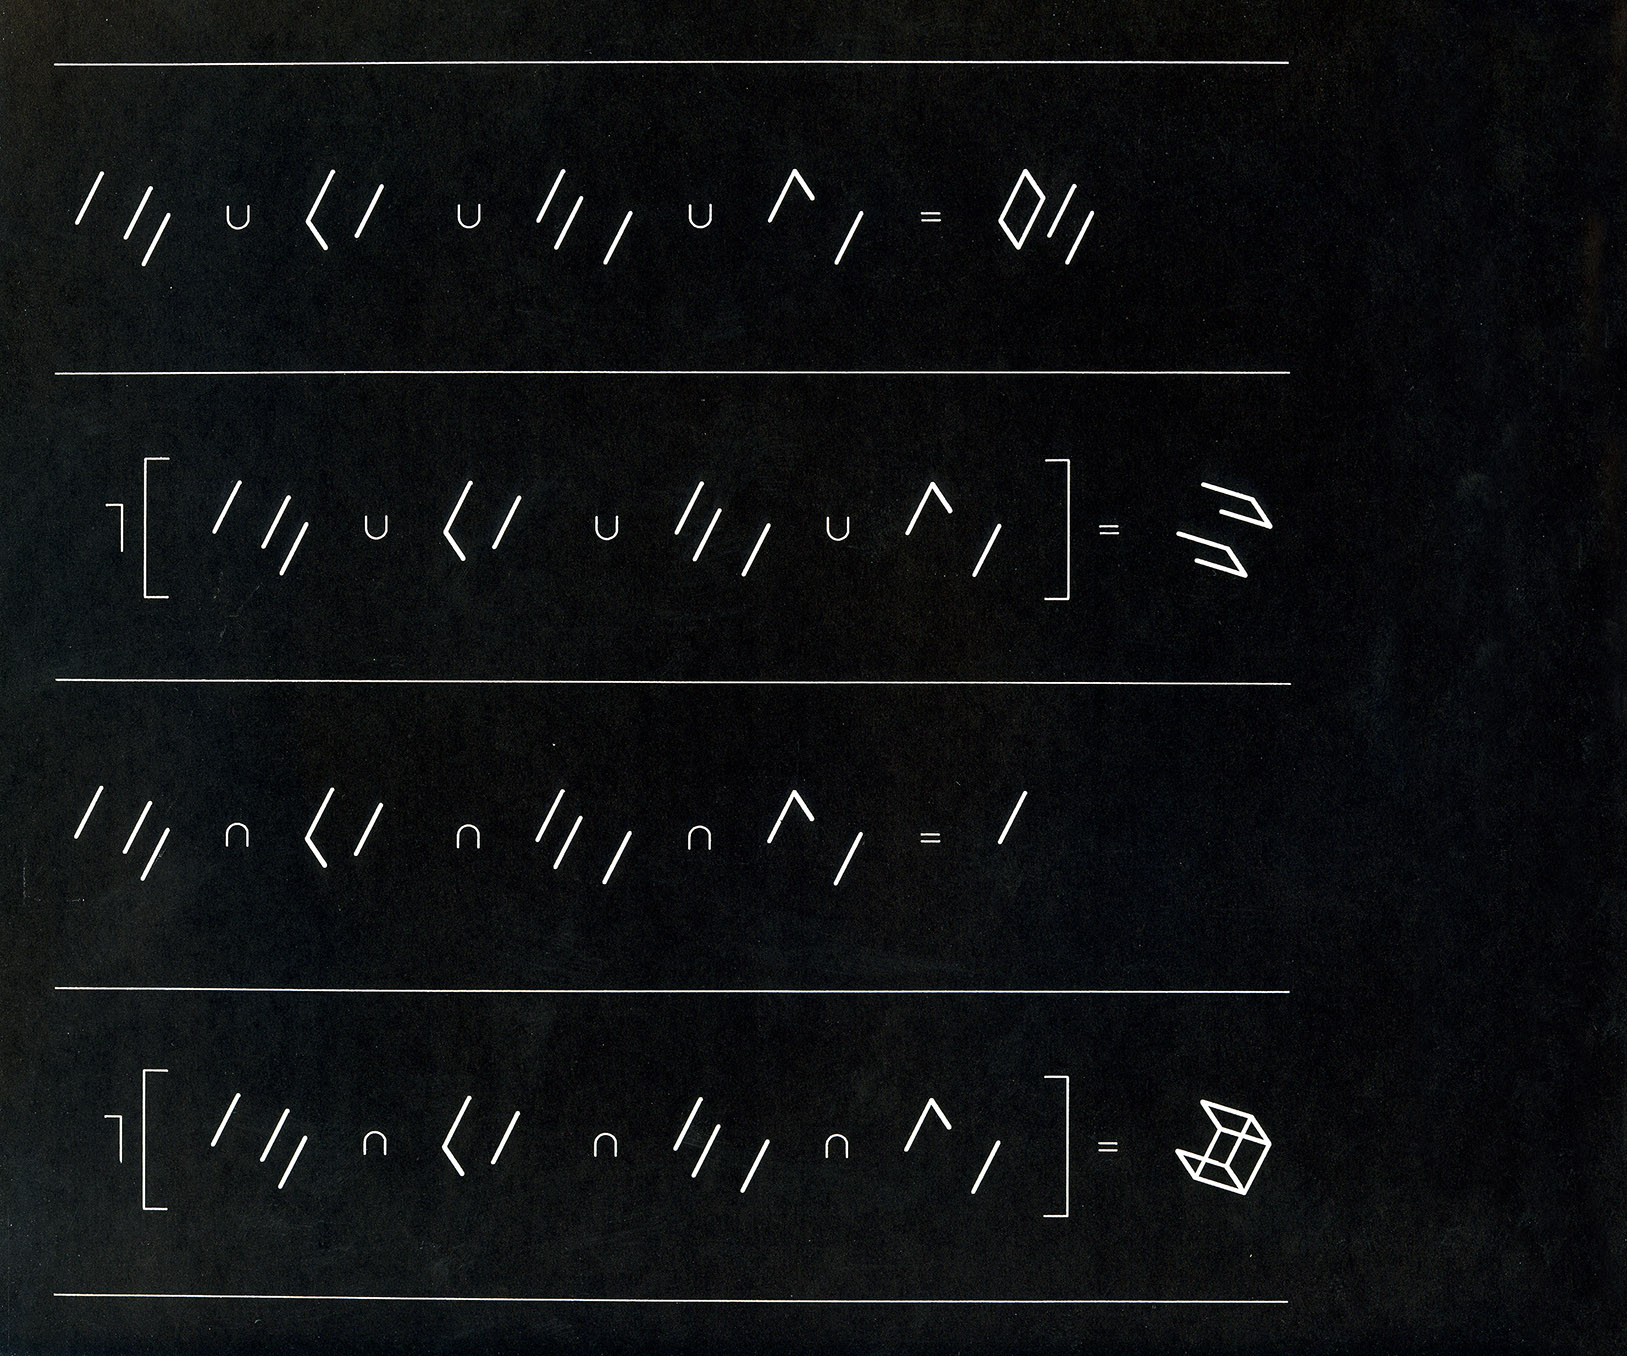 ∪ ∪ ∪ =
¬ [ ∪ ∪ ∪ ] =
∩ ∩ ∩ =
¬ [ ∩ ∩ ∩ ] =